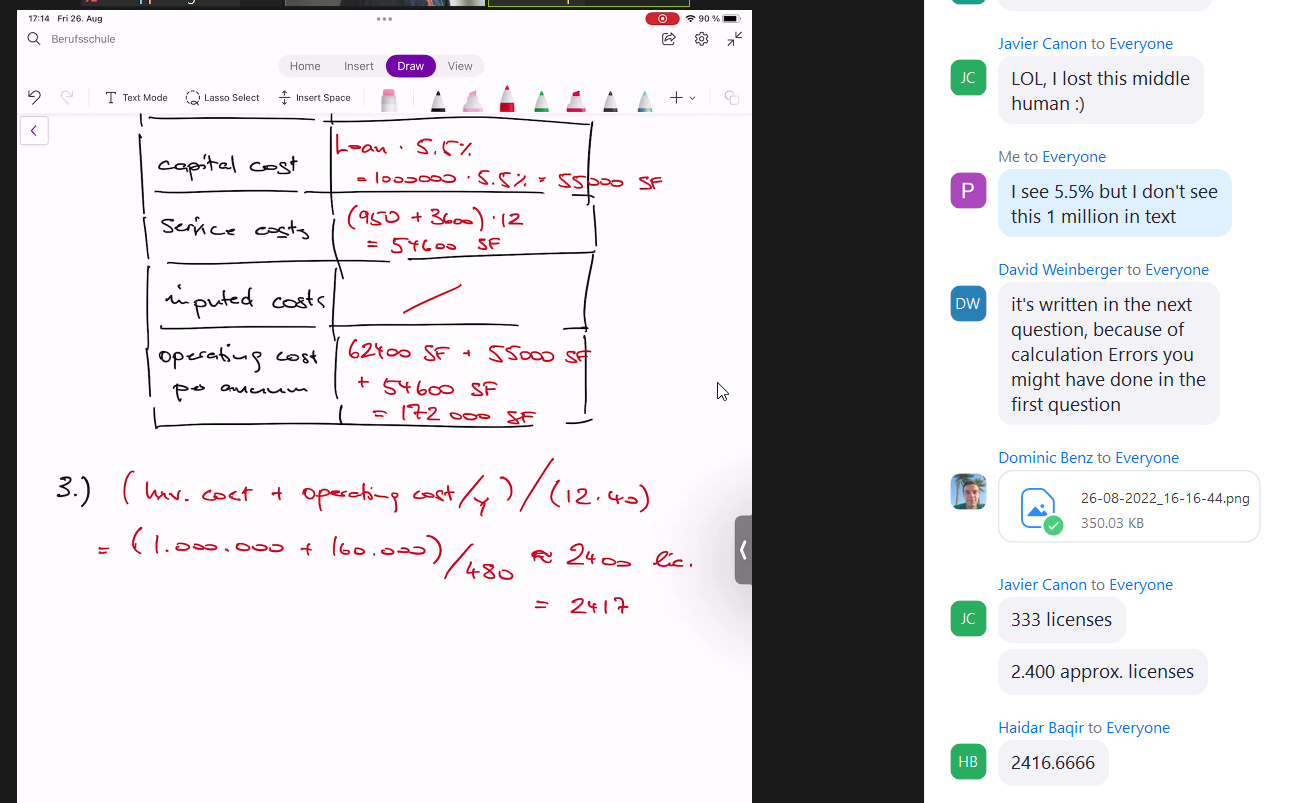 17:14 Fri 26. Aug
90 %
Berufsschule
Home Insert Draw View
Text Mode Lasso Select Insert Space
capital cost
Loan · 5.5%
= 1000000 · 5.5% = 55000 SF
Service costs
(950 + 3600) · 12
= 54600 SF
inputed costs
operating cost
per annum
62400 SF + 55000 SF
+ 54600 SF
= 172 000 SF
3.) (Inv. cost + operating cost/y) / (12.40)
= (1.000.000 + 160.000) / 480 ≈ 2400 lic.
= 2417
Javier Canon to Everyone
JC
LOL, I lost this middle
human :)
Me to Everyone
P
I see 5.5% but I don't see
this 1 million in text
David Weinberger to Everyone
DW
it's written in the next
question, because of
calculation Errors you
might have done in the
first question
Dominic Benz to Everyone
26-08-2022_16-16-44.png
350.03 KB
Javier Canon to Everyone
JC
333 licenses
2.400 approx. licenses
Haidar Baqir to Everyone
HB
2416.6666